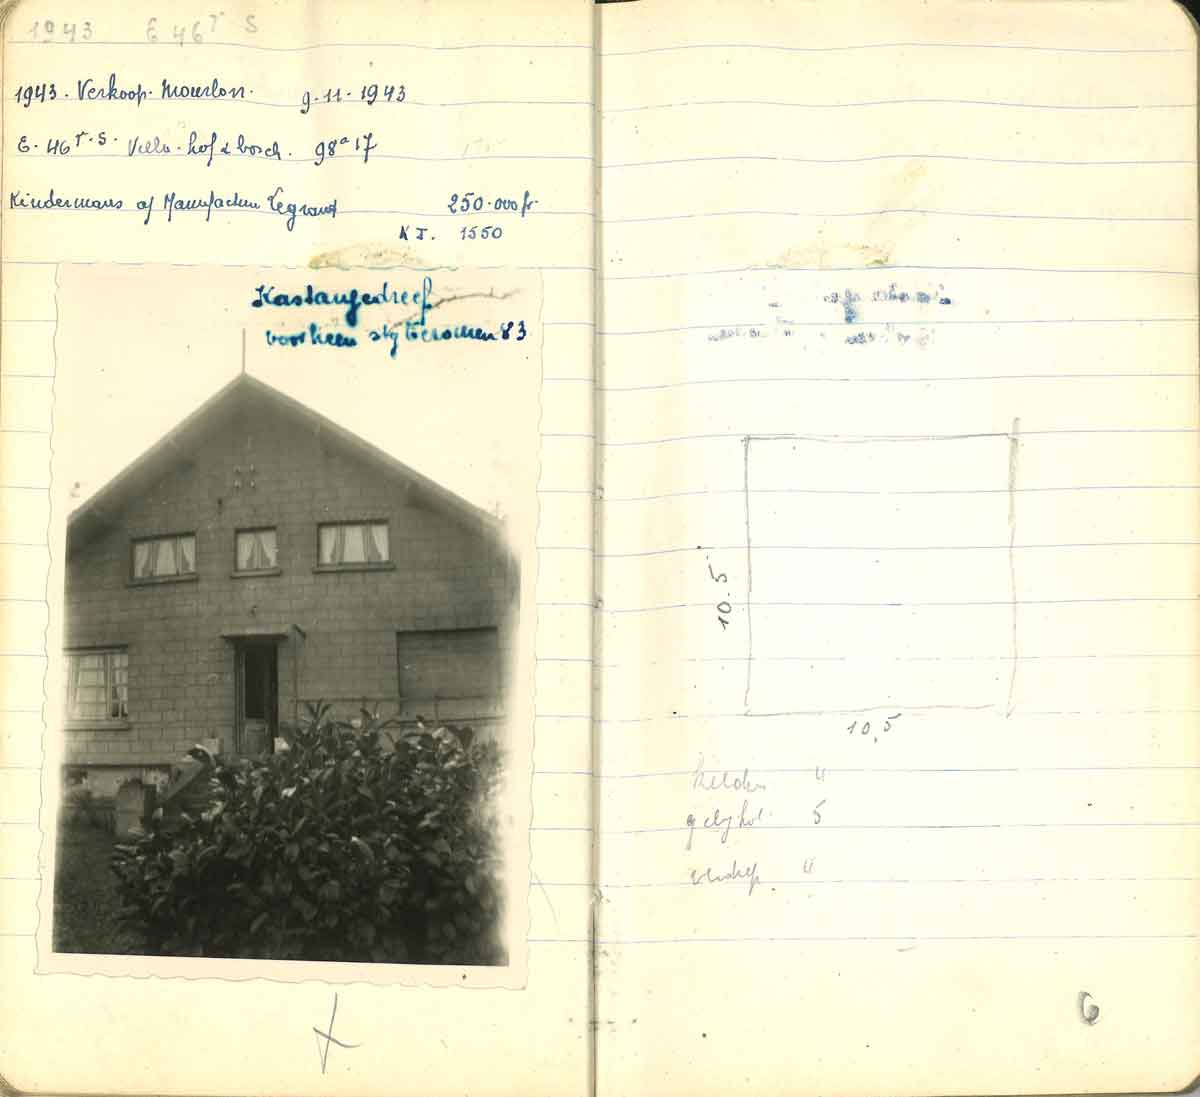 1943 E 46 r S
1943. Verkoop. Mourlon. 9-11-1943
E. 46 r. S. Villa. hof & bosch. 98a 17
Kindermans of Manufactum Legrand 250.000 fr.
K I. 1550
Kastanjedreef
voorheen 83
10.5
10,5
kelder "
gelijkvl. 5
verdiep "
6